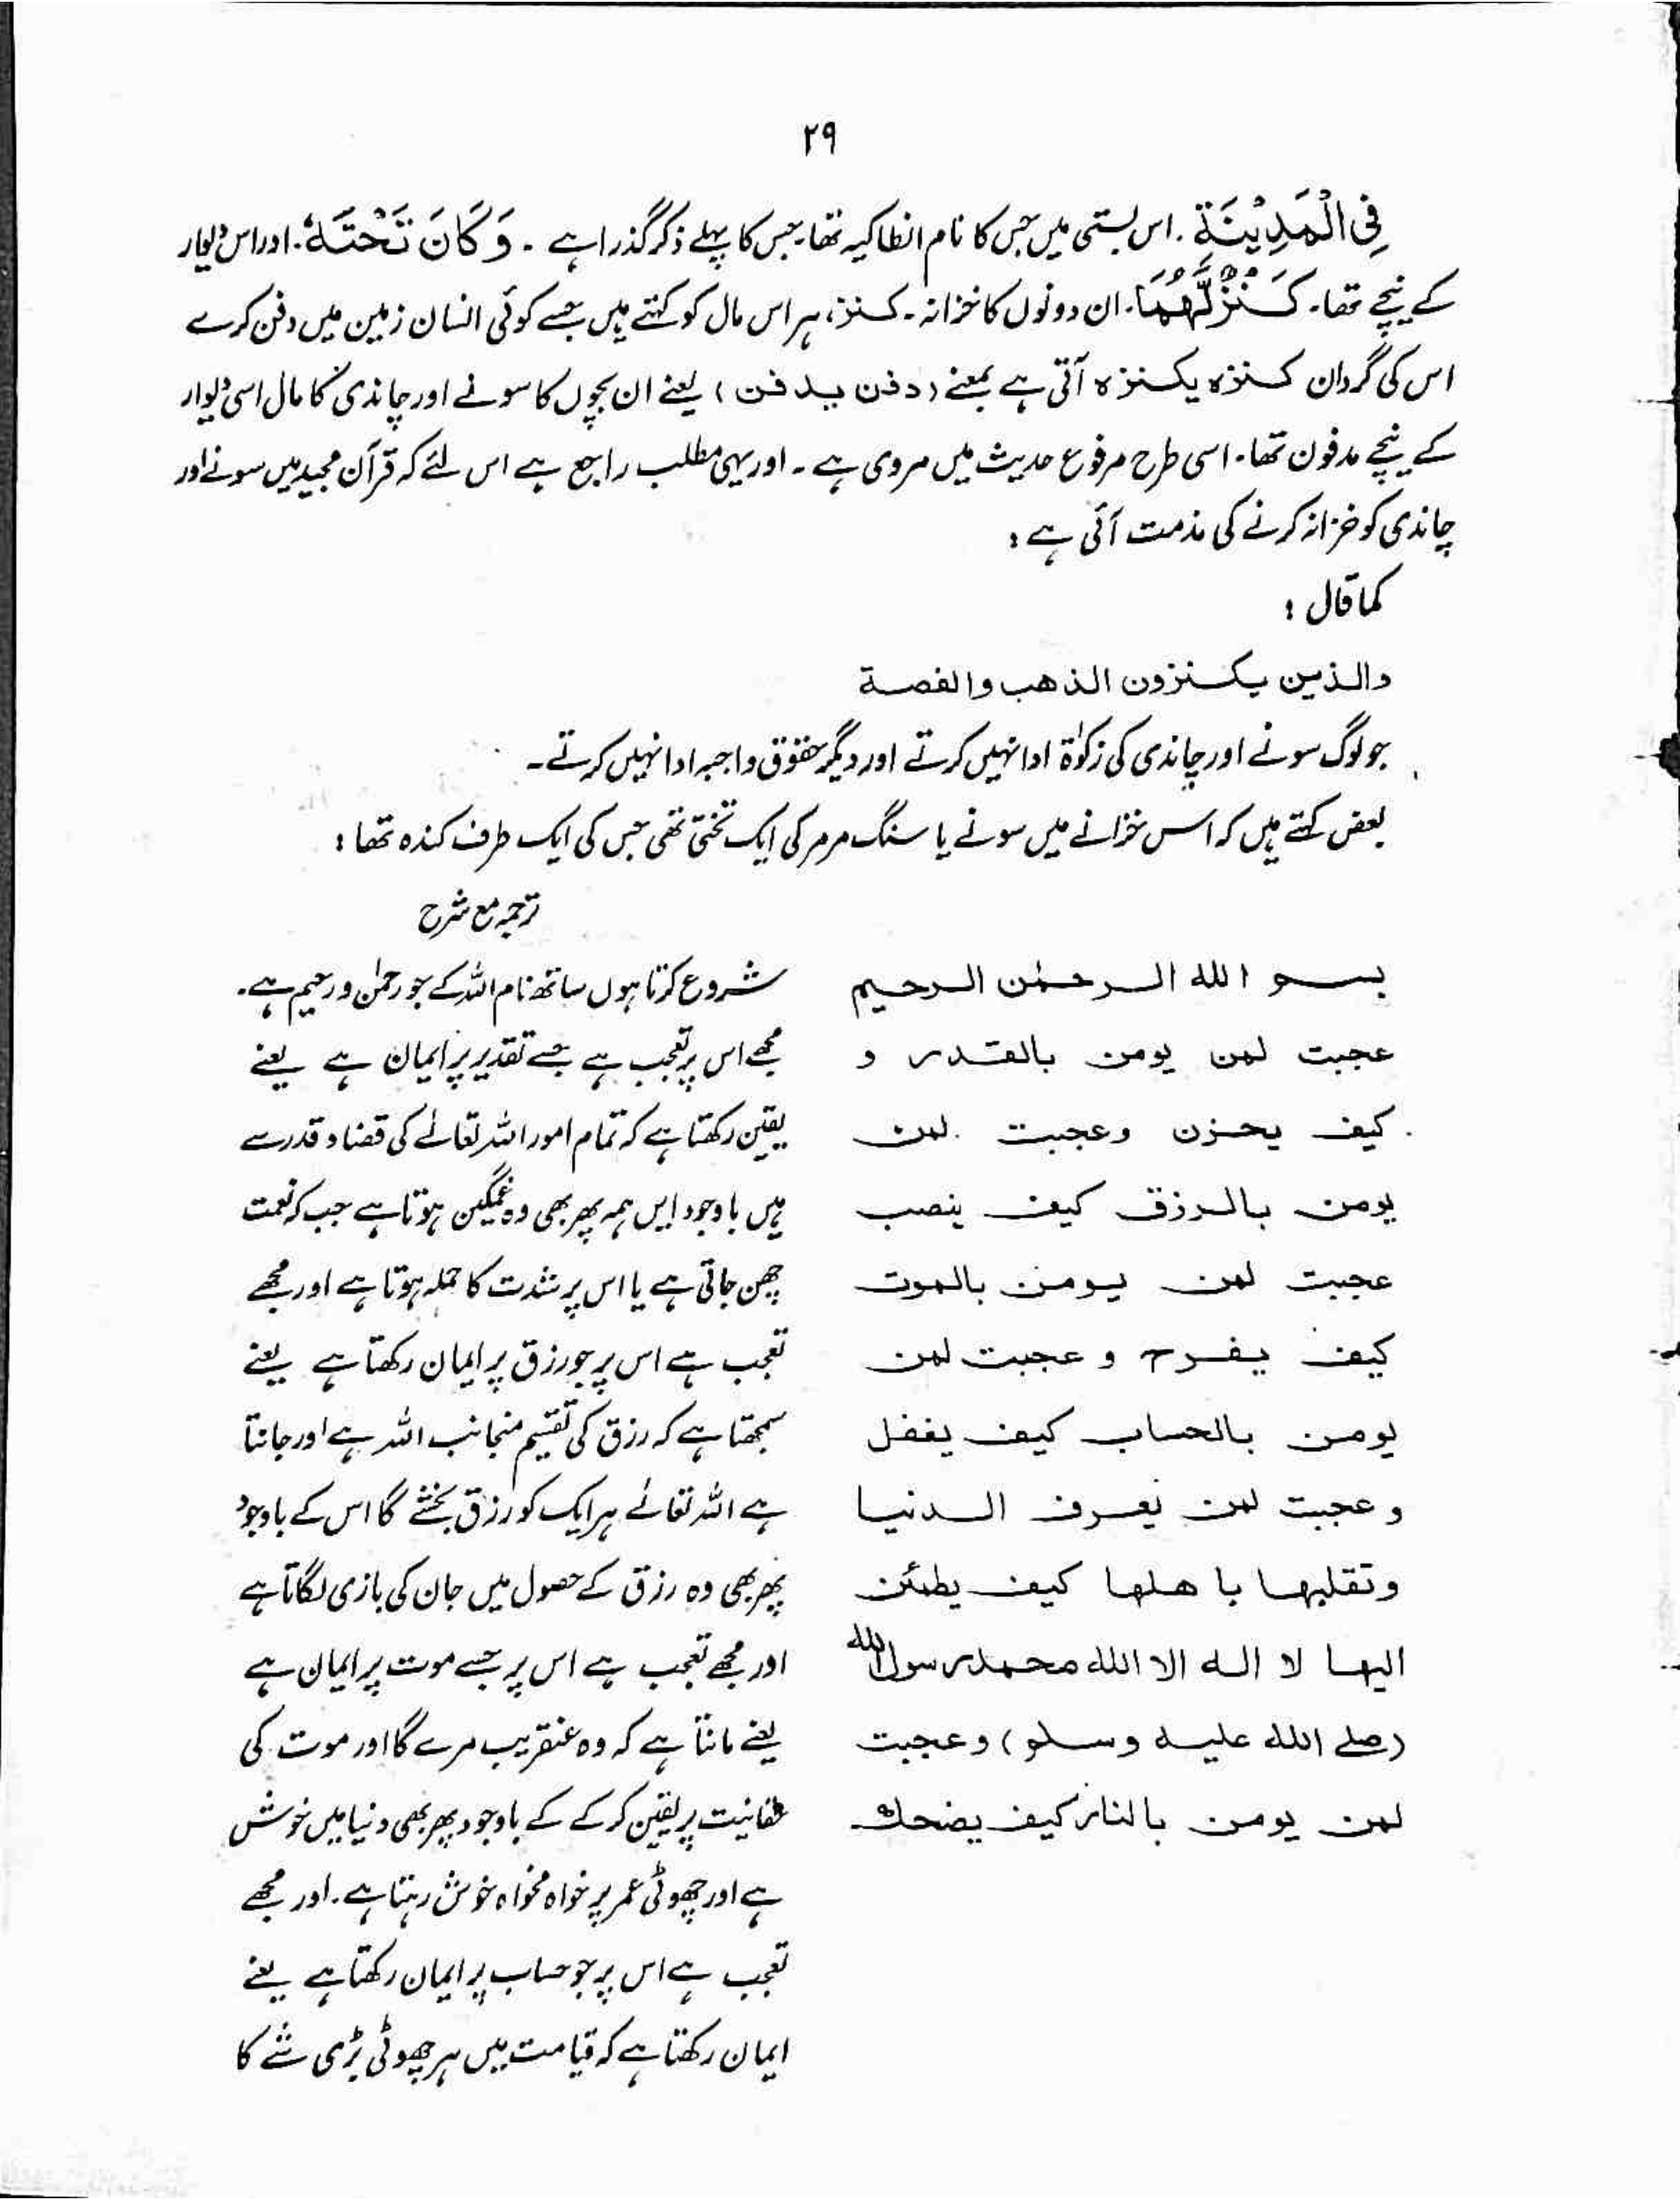 ۲۹
فِی الْمَدِیْنَةِ . اس بستی میں جس کا نام انطاکیہ تھا۔ جس کا پہلے ذکر گذرا ہے ۔ وَكَانَ تَحْتَهٗ ۔ اور اس دیوار
کے نیچے تھا۔ كَنْزٌ لَّهُمَا ۔ ان دونوں کا خزانہ ۔ کنز، ہر اس مال کو کہتے ہیں جسے کوئی انسان زمین میں دفن کرے
اس کی گردان کنزہ یکنزہ آتی ہے بمعنے (دفن یدفن) یعنے ان بچوں کا سونے اور چاندی کا مال اسی دیوار
کے نیچے مدفون تھا۔ اسی طرح مرفوع حدیث میں مروی ہے ۔ اور یہی مطلب راجع ہے اس لئے کہ قرآن مجید میں سونے اور
چاندی کو خزانہ کرنے کی مذمت آئی ہے :
کما قال :
والذین یکنزون الذهب والفصة
جو لوگ سونے اور چاندی کی زکوٰۃ ادا نہیں کرتے اور دیگر حقوق واجبہ ادا نہیں کرتے ۔
بعض کہتے ہیں کہ اس خزانے میں سونے یا سنگ مرمر کی ایک تختی تھی جس کی ایک طرف کندہ تھا :
بسم الله الرحمٰن الرحیم
عجبت لمن یومن بالقدر و
کیف یحزن وعجبت لمن
یومن بالرزق کیف ینصب
عجبت لمن یومن بالموت
کیف یفرح و عجبت لمن
یومن بالحساب کیف یغفل
و عجبت لمن یعرف الدنیا
وتقلبها با هلها کیف یطمئن
الیها لا اله الا الله محمد رسول الله
(صلے الله علیه وسلم) و عجبت
لمن یومن بالنار کیف یضحك
ترجمہ مع شرح
شروع کرتا ہوں ساتھ نام اللہ کے جو رحمٰن و رحیم ہے ۔
مجھے اس پر تعجب ہے جسے تقدیر پر ایمان ہے یعنے
یقین رکھتا ہے کہ تمام امور اللہ تعالےٰ کی قضا و قدر سے
ہیں باوجود ایں ہمہ پھر بھی وہ غمگین ہوتا ہے جب کہ نعمت
چھن جاتی ہے یا اس پر شدت کا حملہ ہوتا ہے اور مجھے
تعجب ہے اس پر جو رزق پر ایمان رکھتا ہے یعنے
سمجھتا ہے کہ رزق کی تقسیم منجانب اللہ ہے اور جانتا
ہے اللہ تعالےٰ ہر ایک کو رزق بخشے گا اس کے باوجود
پھر بھی وہ رزق کے حصول میں جان کی بازی لگاتا ہے
اور مجھے تعجب ہے اس پر جسے موت پر ایمان ہے
یعنے مانتا ہے کہ وہ عنقریب مرے گا اور موت کی
حقانیت پر یقین کر کے کے باوجود پھر بھی دنیا میں خوش
ہے اور چھوٹی عمر پر خواہ مخواہ خوش رہتا ہے ۔ اور مجھے
تعجب ہے اس پر جو حساب پر ایمان رکھتا ہے یعنے
ایمان رکھتا ہے کہ قیامت میں ہر چھوٹی بڑی شے کا